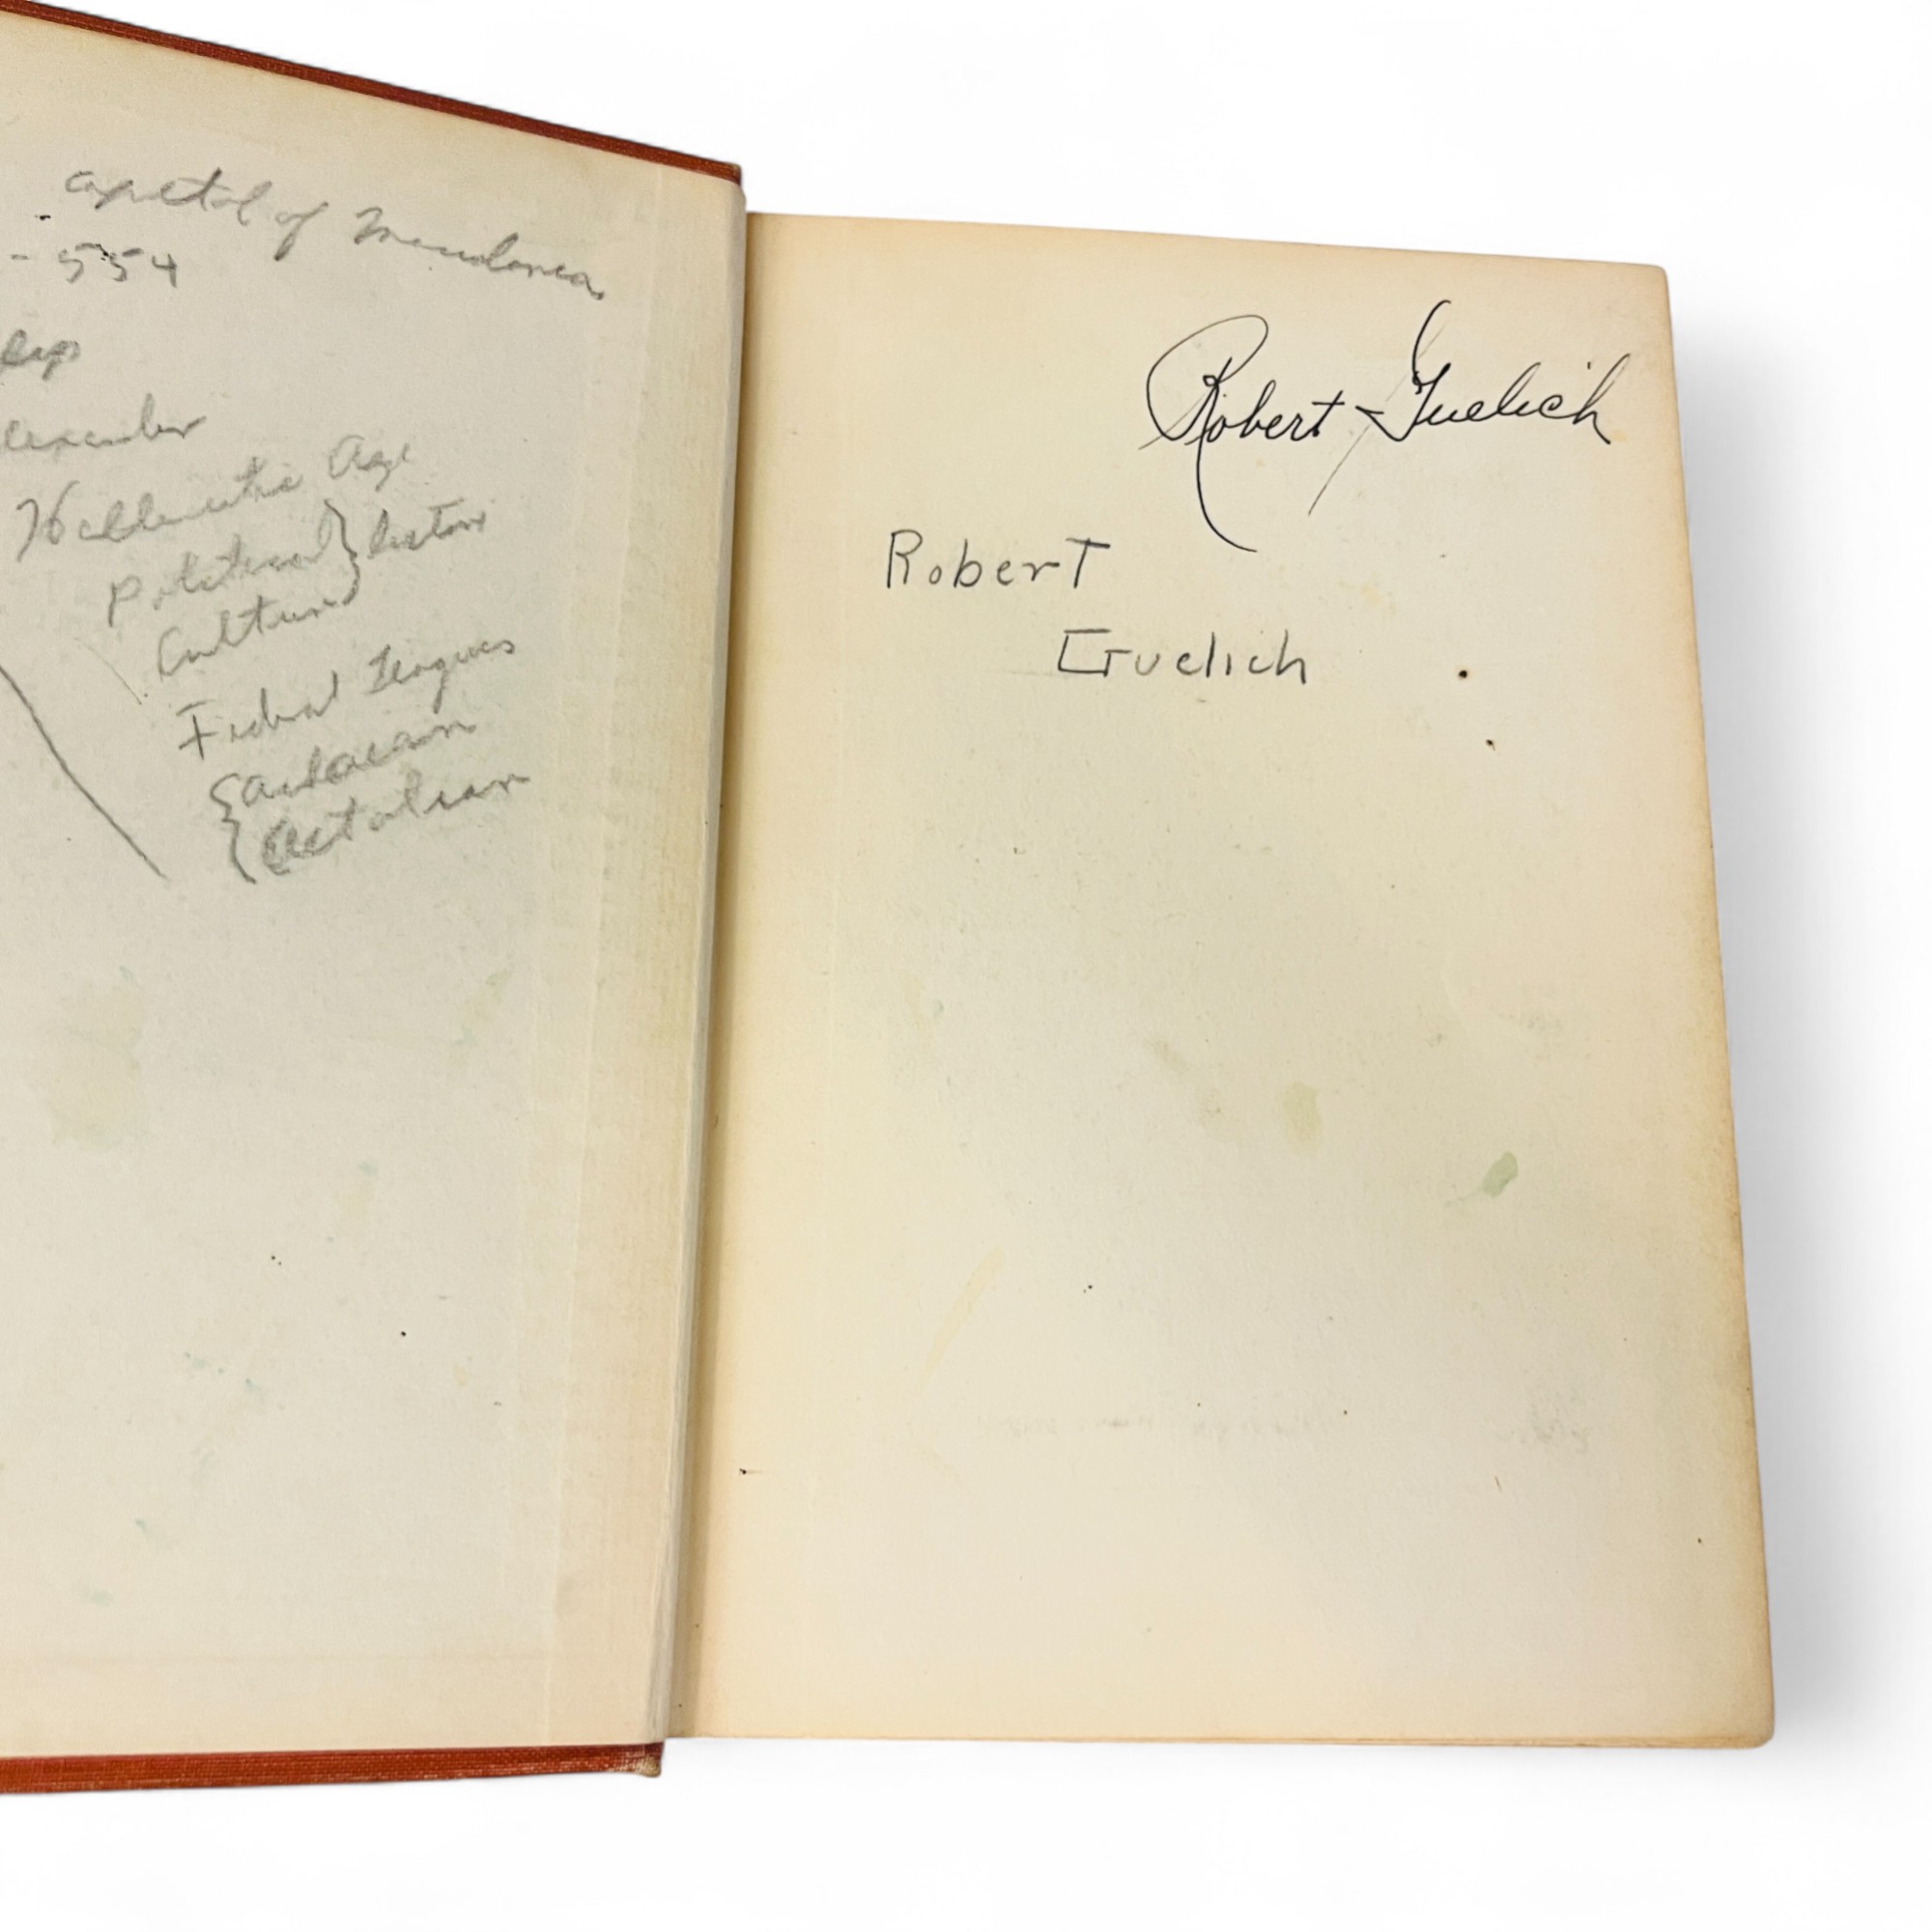 capital of Macedonia
- 554
Alexander
Hellenistic Age
Political } history
Cultural
Federal Leagues
{ Achaean
{ Aetolian
Robert Guelich
Robert
Guelich